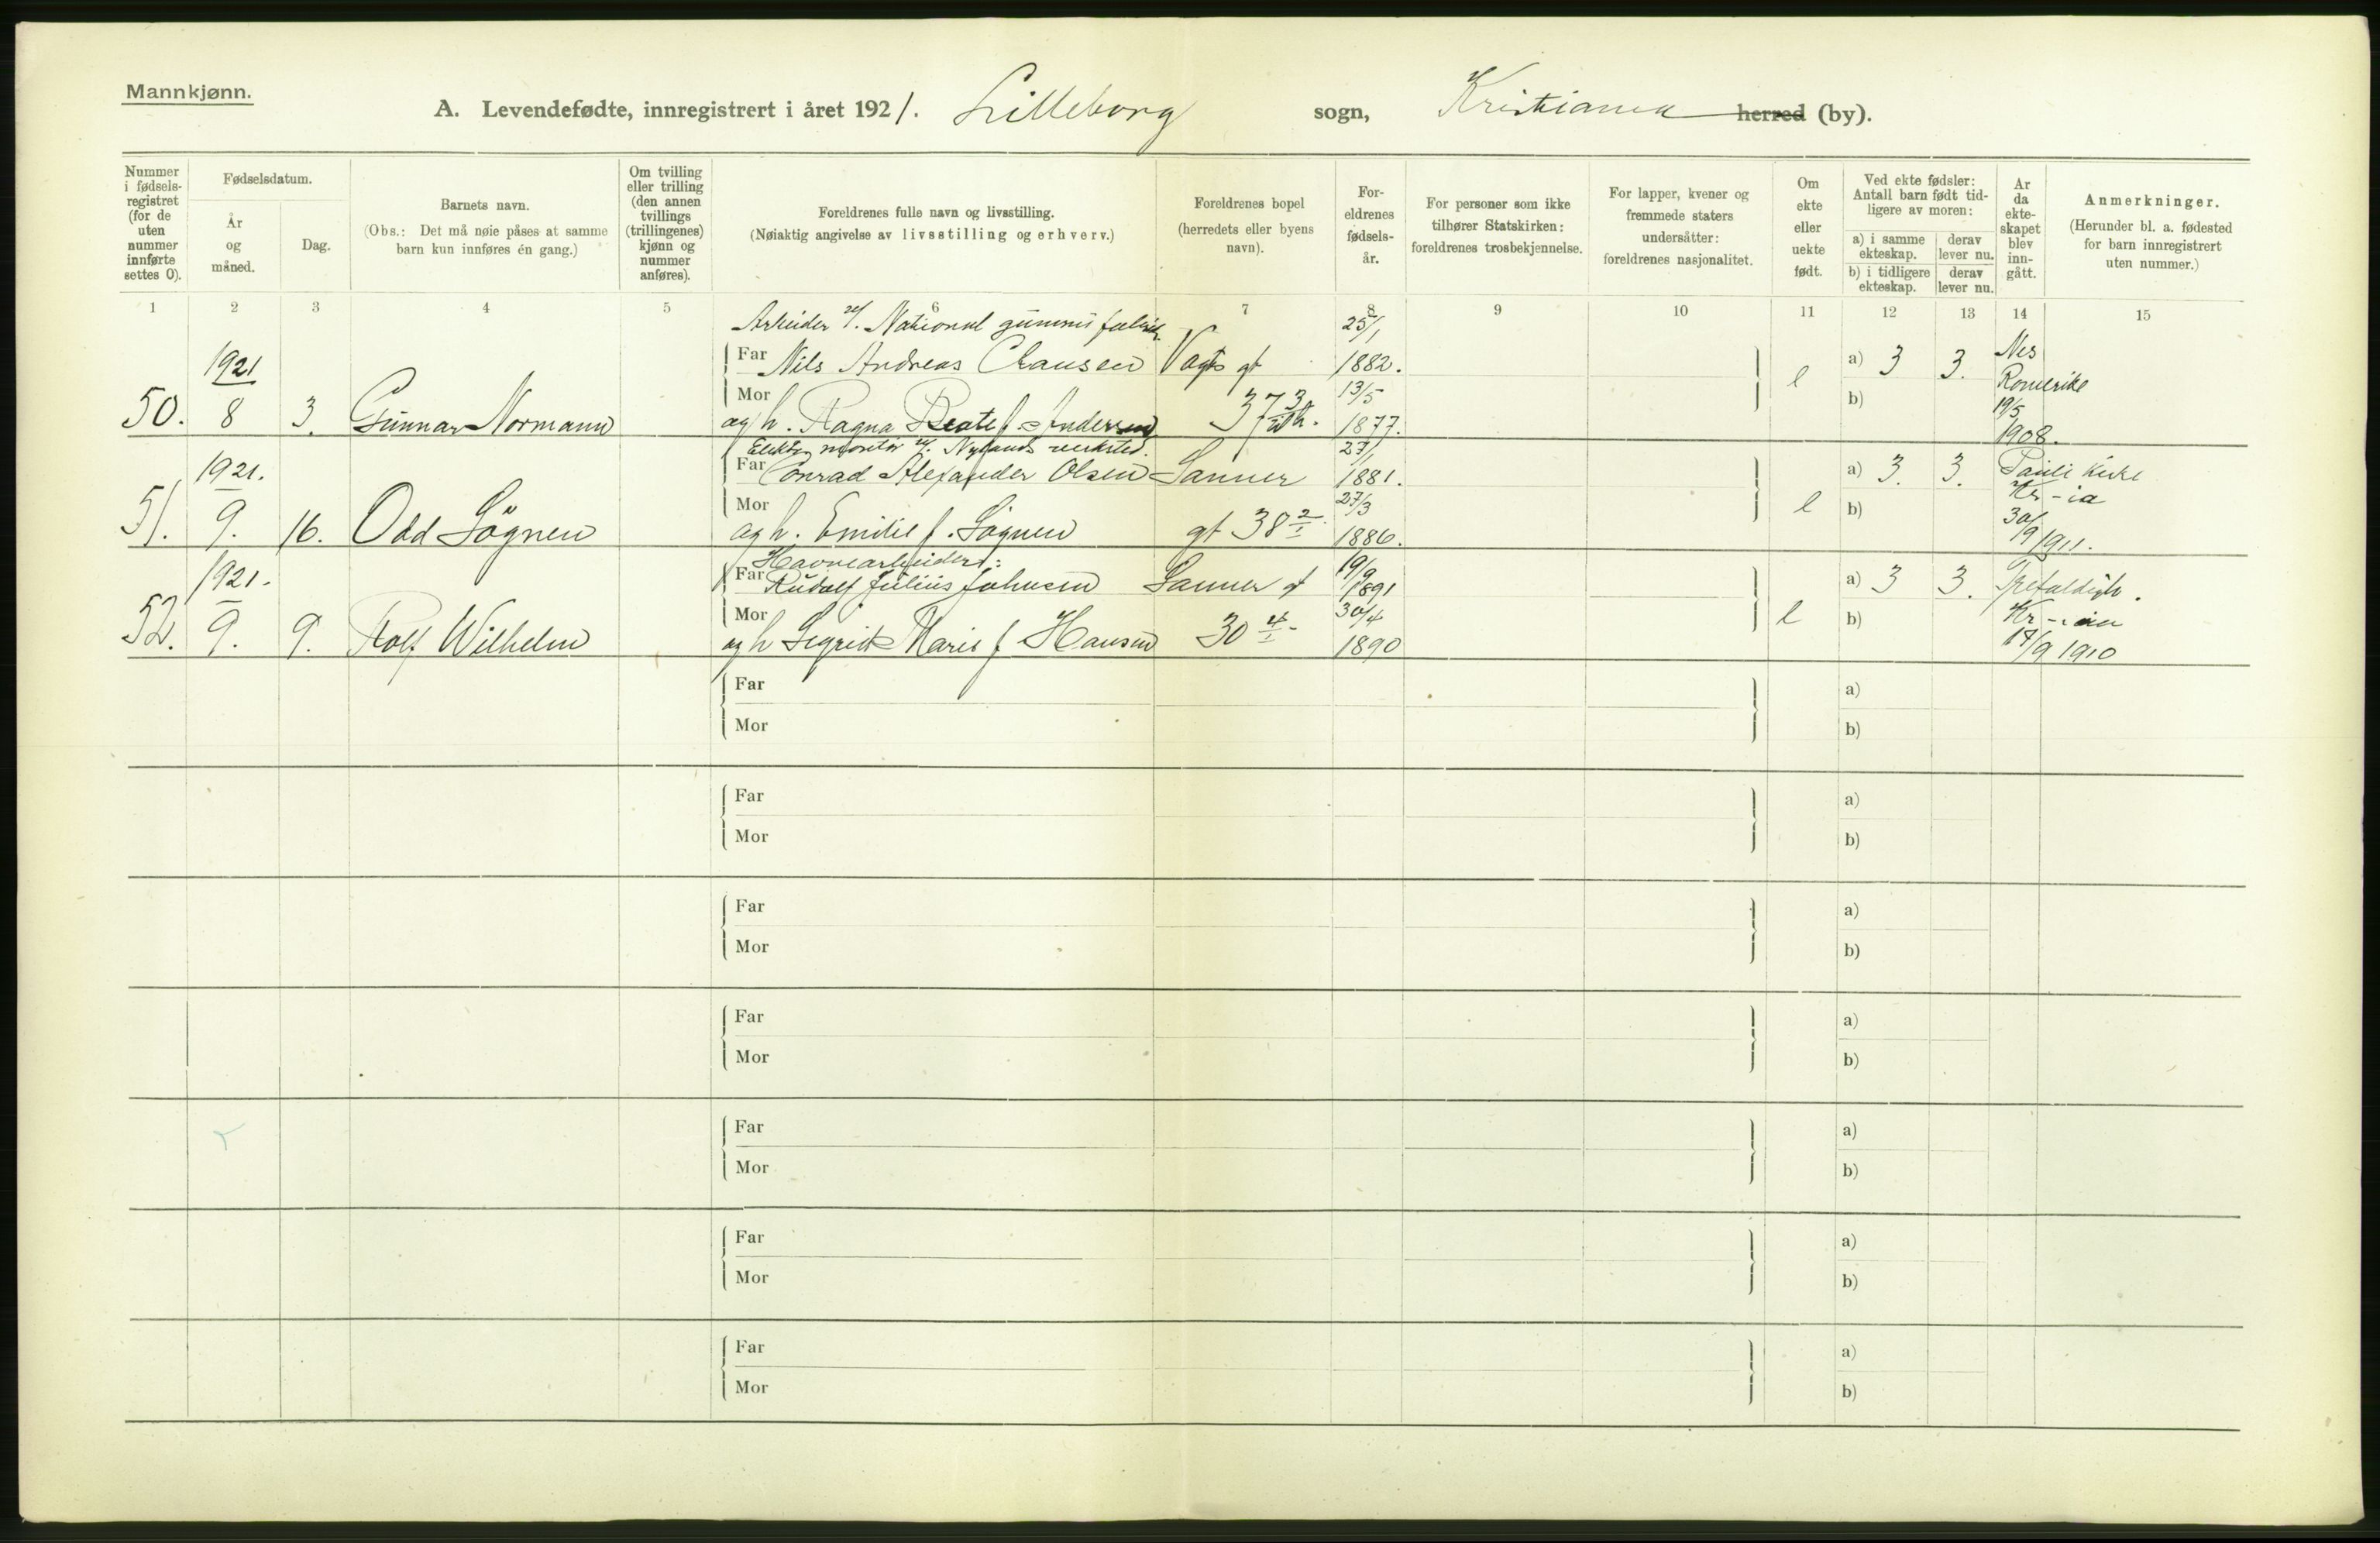 Mannkjønn.
A. Levendefødte, innregistrert i året 1921. Lilleborg sogn, Kristiania herred (by).
Nummer i fødsels-registret (for de uten nummer innførte settes 0).
Fødselsdatum.
År og måned.
Dag.
Barnets navn.
(Obs.: Det må nøie påses at samme barn kun innføres én gang.)
Om tvilling eller trilling (den annen tvillings (trillingenes) kjønn og nummer anføres).
Foreldrenes fulle navn og livsstilling.
(Nøiaktig angivelse av livsstilling og erhverv.)
Foreldrenes bopel (herredets eller byens navn).
For-eldrenes fødsels-år.
For personer som ikke tilhører Statskirken: foreldrenes trosbekjennelse.
For lapper, kvener og fremmede staters undersåtter: foreldrenes nasjonalitet.
Om ekte eller uekte født.
Ved ekte fødsler: Antall barn født tid-ligere av moren:
a) i samme ekteskap.
derav lever nu.
b) i tidligere ekteskap.
derav lever nu.
År da ekte-skapet blev inn-gått.
Anmerkninger.
(Herunder bl. a. fødested for barn innregistrert uten nummer.)
1 2 3 4 5 6 7 8 9 10 11 12 13 14 15
Arbeider v/. National gummi fabrik
25/1
1921 Far Nils Andreas Clausen Vogts gt 1882. e a) 3 3. Nes
Romerike
50. 8 3. Gunnar Normann Mor og h. Ragna Beate f. Andersen 37 13/5 1877. b) 19/5
1908.
Elektr. montør v. Nylands verksted.
27/1
1921. Far Conrad Alexander Olsen Sanner 1881. e a) 3. 3. Pauli Kirke
Kr-ia
51. 9. 16. Odd Sögnen Mor og h. Emilie f. Sögnen gt 38 2/1 27/3 1886. b) 30/9 1911.
Havnearbeider:
19/9
1921. Far Rudolf Julius Johnsen Sanner gt 1891 e a) 3 3. Trefoldigh.
Kr-ia
52. 9. 9. Rolf Wilhelm Mor og h Sigrid Marie f Hansen 30 4/1 30/4 1890 b) 17/9 1910
Far a)
Mor b)
Far a)
Mor b)
Far a)
Mor b)
Far a)
Mor b)
Far a)
Mor b)
Far a)
Mor b)
Far a)
Mor b)